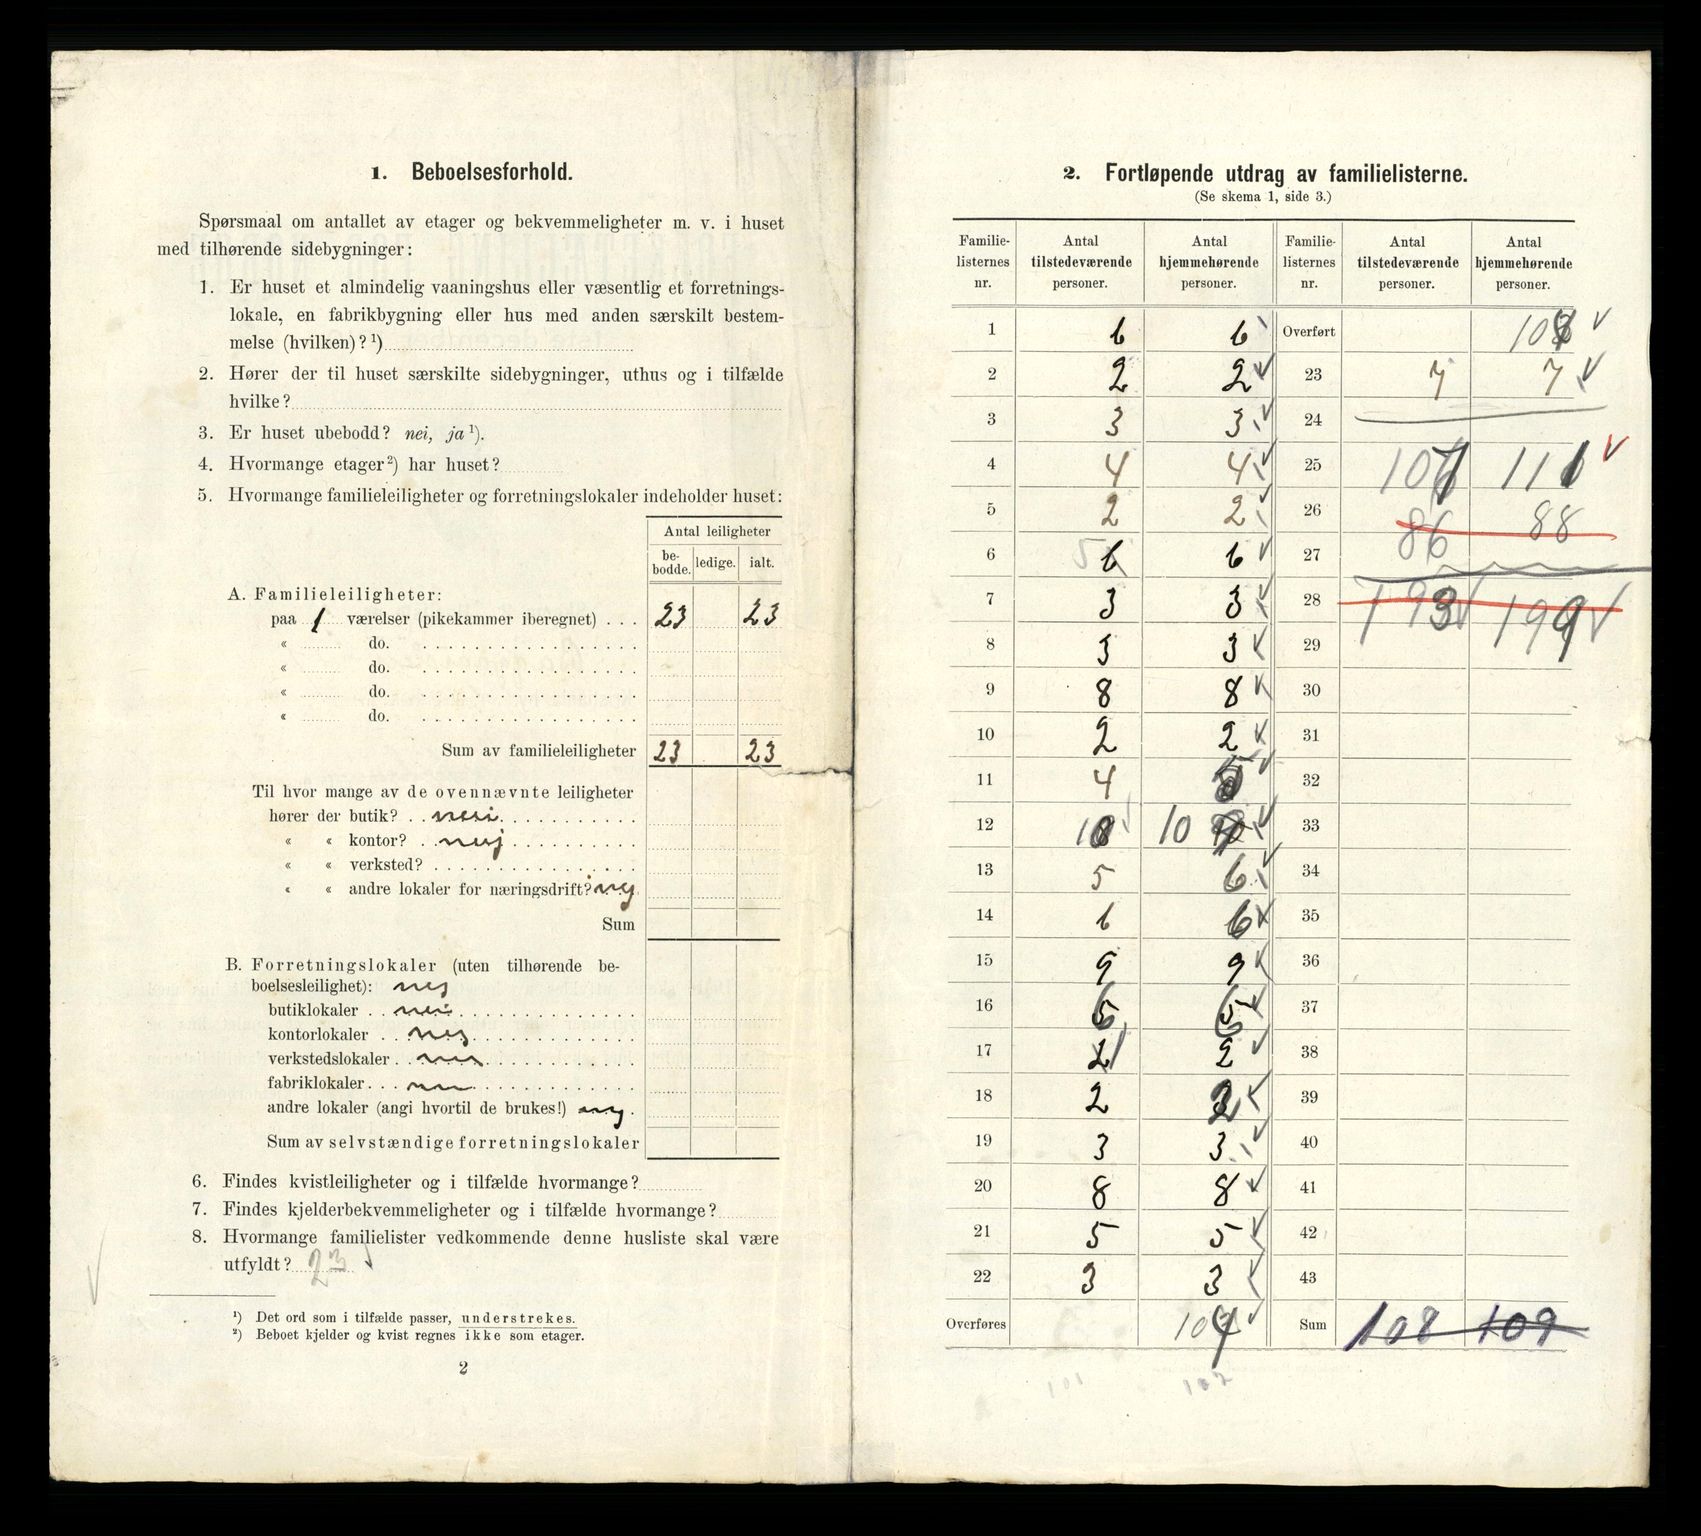 1. Beboelsesforhold.
Spørsmaal om antallet av etager og bekvemmeligheter m. v. i huset
med tilhørende sidebygninger:
1. Er huset et almindelig vaaningshus eller væsentlig et forretnings-
lokale, en fabrikbygning eller hus med anden særskilt bestem-
melse (hvilken)? ¹)
2. Hører der til huset særskilte sidebygninger, uthus og i tilfælde
hvilke?
3. Er huset ubebodd? nei, ja ¹).
4. Hvormange etager ²) har huset?
5. Hvormange familieleiligheter og forretningslokaler indeholder huset:
Antal leiligheter
be-bodde. ledige. ialt.
A. Familieleiligheter:
paa 1 værelser (pikekammer iberegnet) . . . 23 23
« do.
« do.
« do.
« do.
Sum av familieleiligheter 23 23
Til hvor mange av de ovennævnte leiligheter
hører der butik? nei
« « kontor? nej
« « verksted?
« « andre lokaler for næringsdrift? nej
Sum
B. Forretningslokaler (uten tilhørende be-
boelsesleilighet): nej
butiklokaler nei
kontorlokaler nej
verkstedslokaler nei
fabriklokaler
andre lokaler (angi hvortil de brukes!) nej.
Sum av selvstændige forretningslokaler
6. Findes kvistleiligheter og i tilfælde hvormange?
7. Findes kjelderbekvemmeligheter og i tilfælde hvormange?
8. Hvormange familielister vedkommende denne husliste skal være
utfyldt? 23
¹) Det ord som i tilfælde passer, understrekes.
²) Beboet kjelder og kvist regnes ikke som etager.
2
2. Fortløpende utdrag av familielisterne.
(Se skema 1, side 3.)
Familie-listernes nr. Antal tilstedeværende personer. Antal hjemmehørende personer. Familie-listernes nr. Antal tilstedeværende personer. Antal hjemmehørende personer.
1 6 6 Overført
2 2 2 23 7 7
3 3 3 24
4 4 4 25 107 111
5 2 2 26 86 88
6 5 6 6 27
7 3 3 28 193 199
8 3 3 29
9 8 8 30
10 2 2 31
11 4 5 32
12 10 33
13 5 6 34
14 6 6 35
15 9 9 36
16 6 6 37
17 1 2 38
18 2 2 39
19 3 3 40
20 8 8 41
21 5 5 42
22 3 3 43
Overføres 104 Sum 108 109
101 102